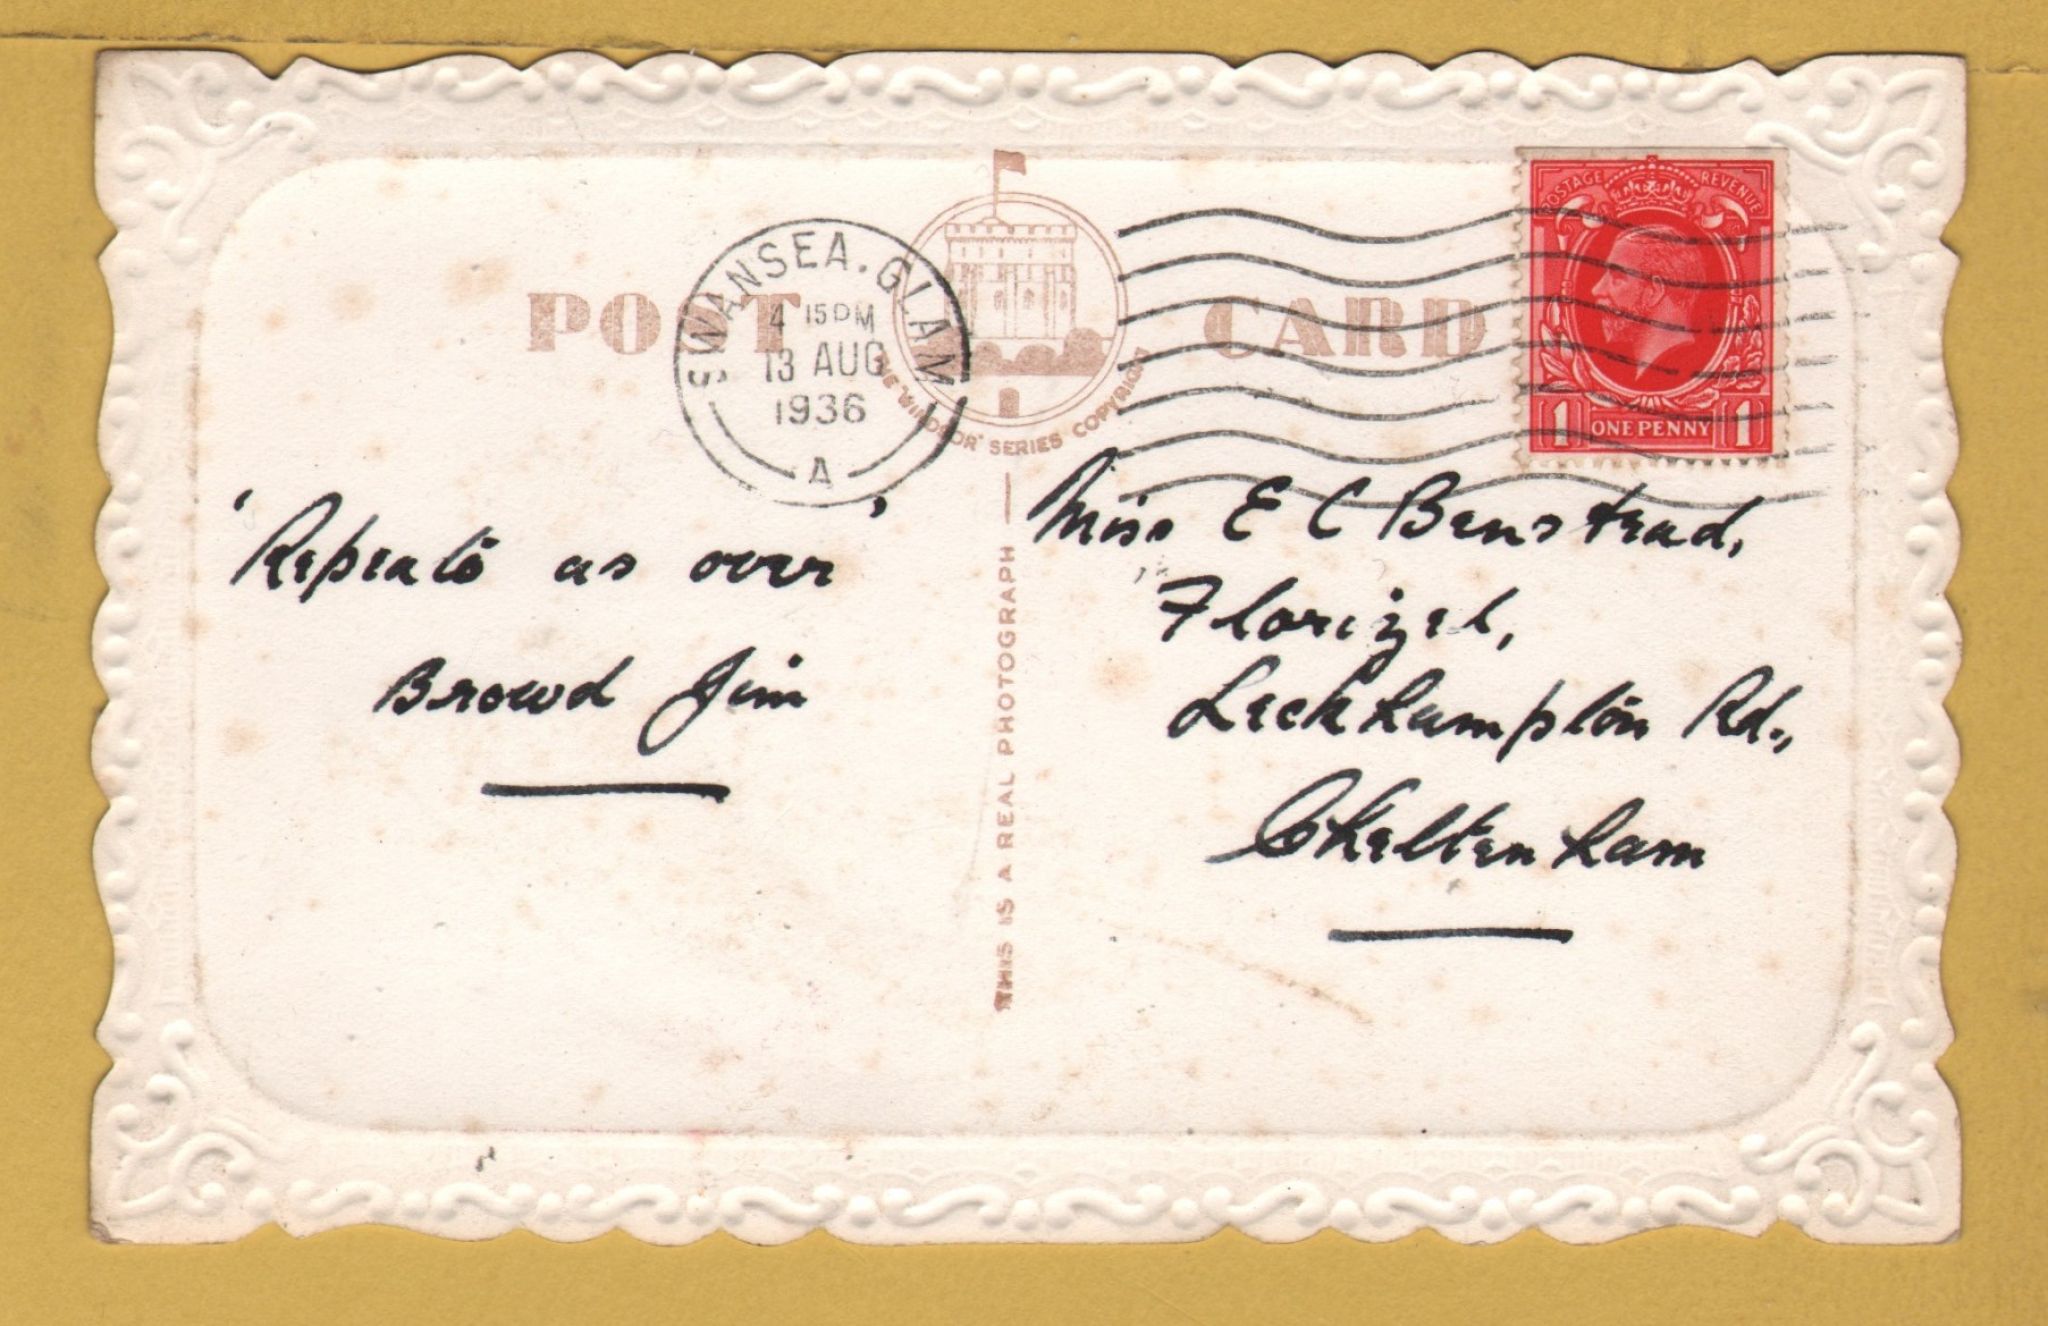 POST CARD
SWANSEA. GLAM
4 15 PM
13 AUG
1936
A
THE 'WINDSOR' SERIES COPYRIGHT
POSTAGE REVENUE
1 ONE PENNY 1
'Repeato as over'
Browd Jim
THIS IS A REAL PHOTOGRAPH
Miss E C Benstead,
Florizel,
Leckhampton Rd.,
Cheltenham